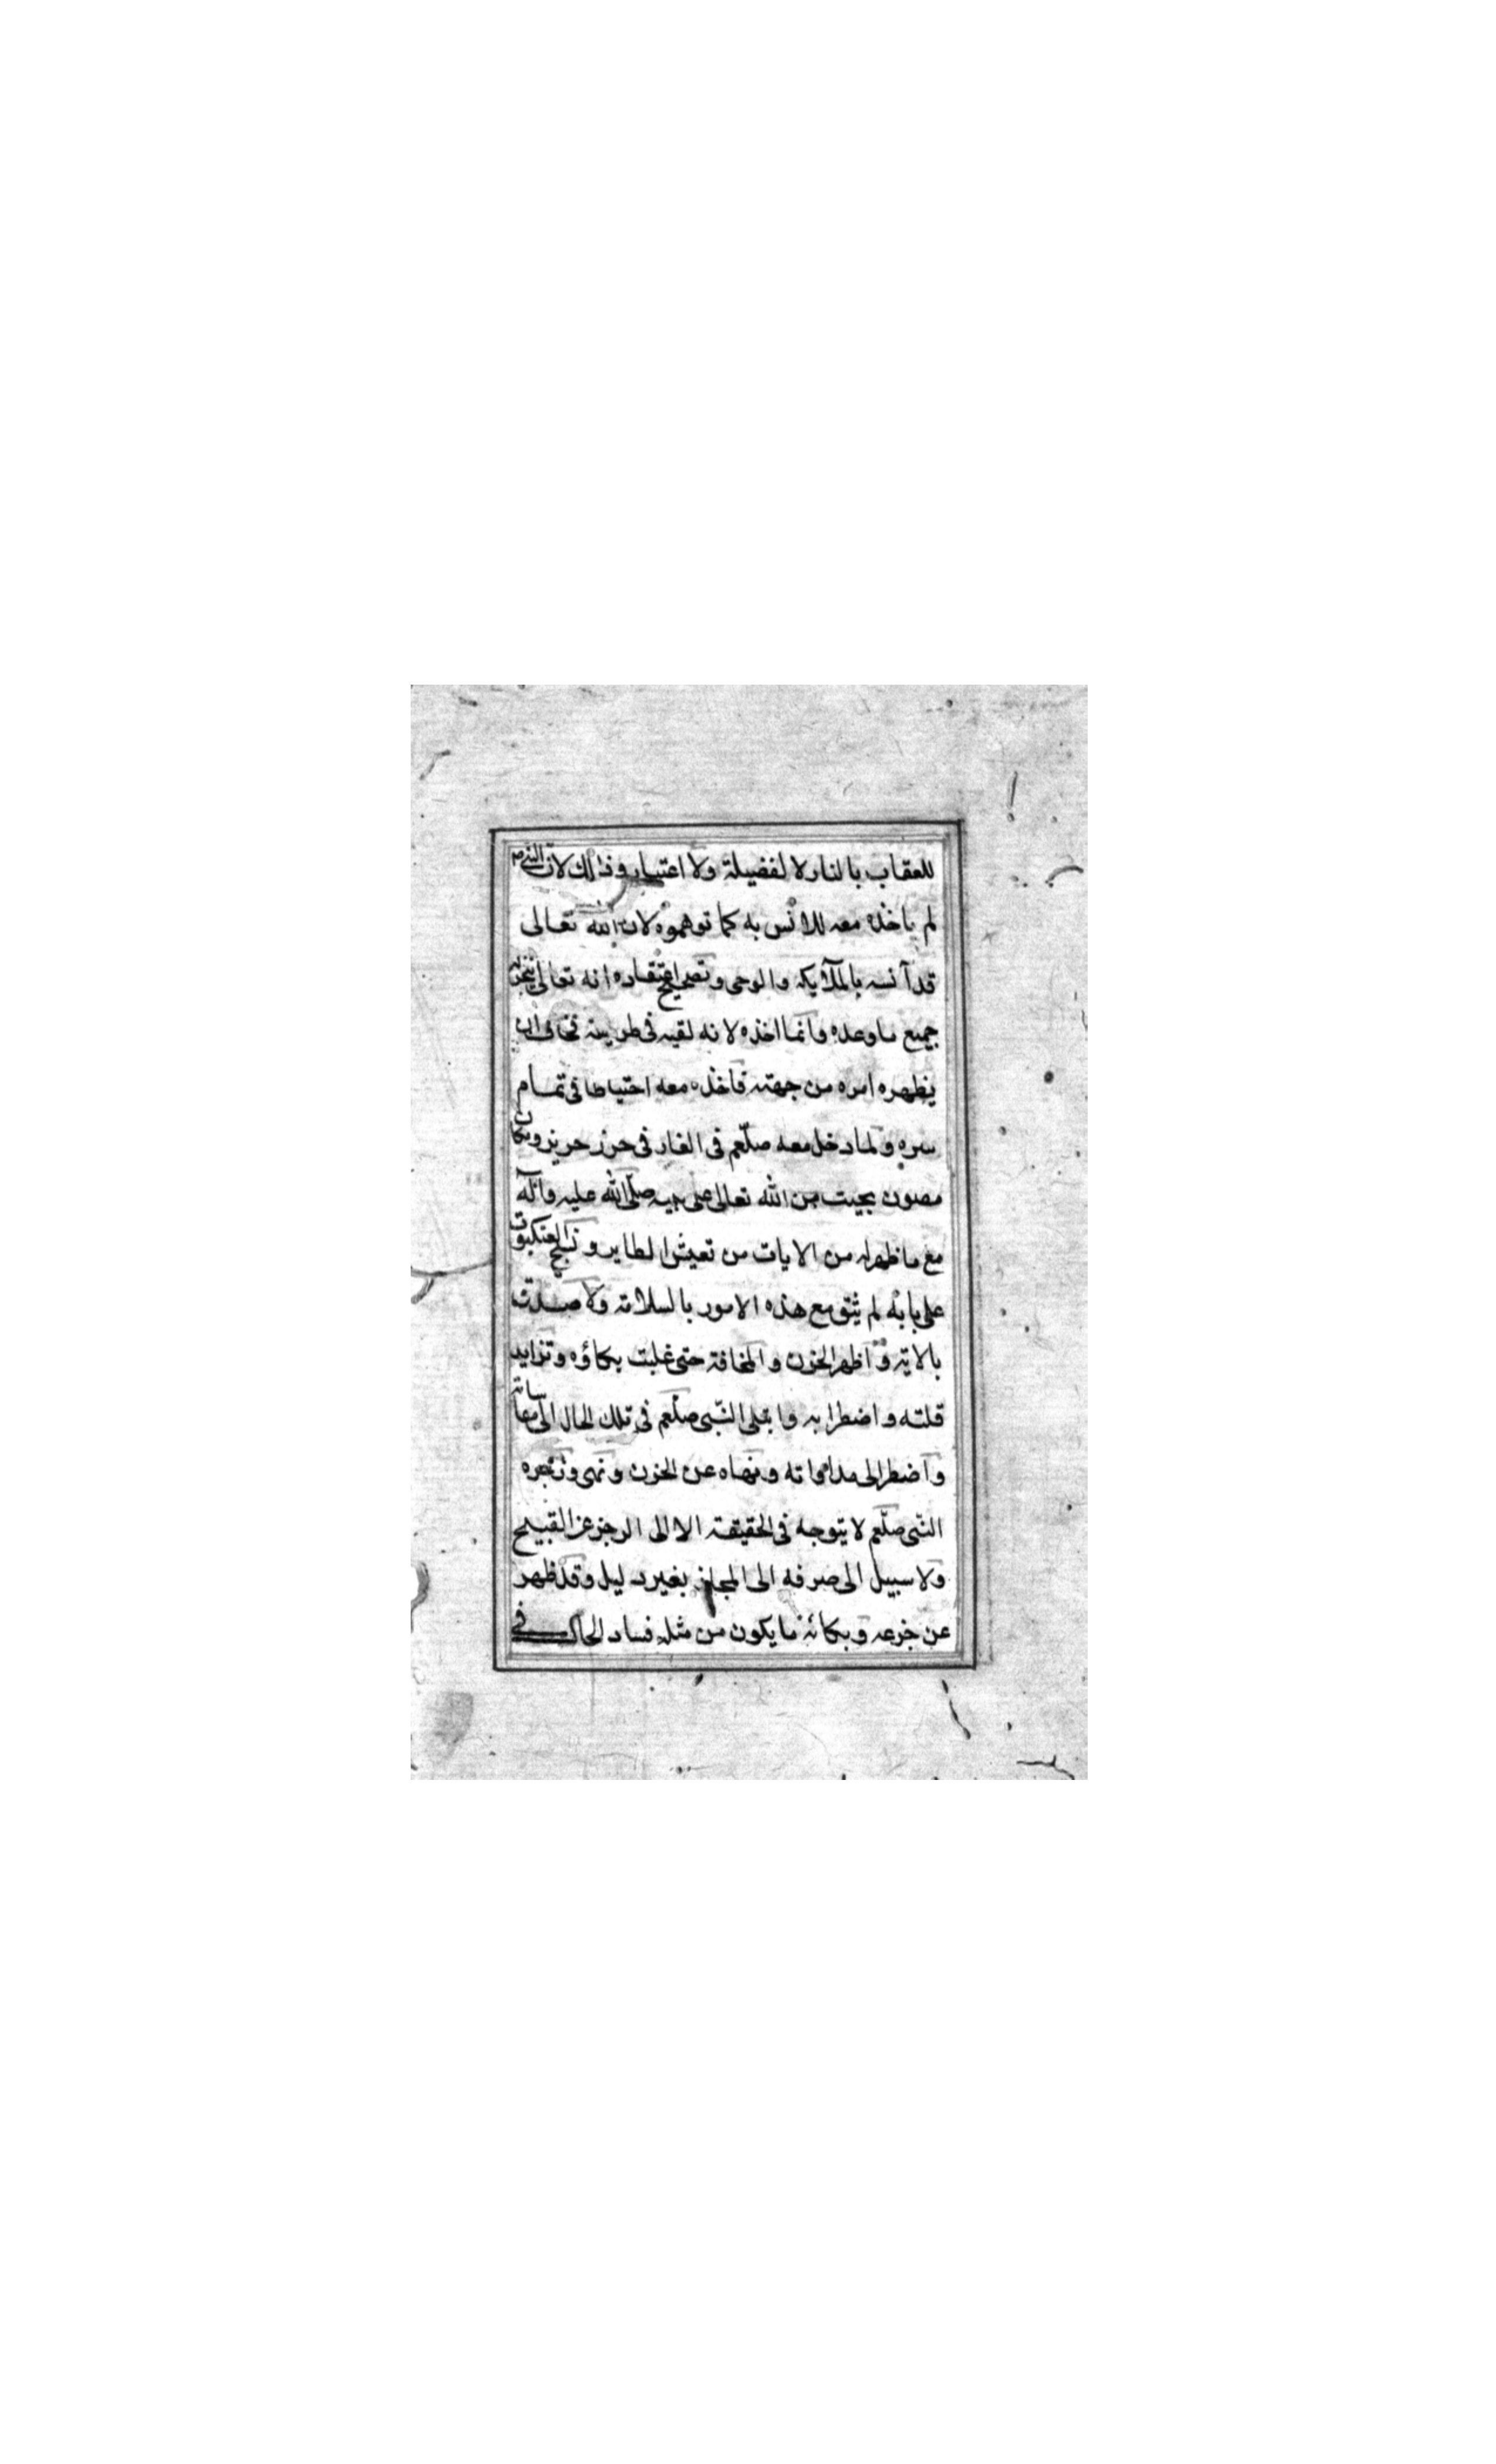 للعقاب بالنار لا لفضيلة ولا اعتبار وذلك لان النبي م
لم ياخذه معه للانس به كما توهموه لان الله تعالى
قد آنسه بالملآيكه والوحى وتصحيح اعتقاده انه تعالى ينجز له
جميع ما وعده وانما اخذه لانه لقيه فى طريقه فخاف ان
يظهره امره من جهته فاخذه معه احتياطا فى تمام
سره ولما دخل معه صلعم فى الغار فى حرز حريز ومكان
مصون بحيث من الله تعالى على نبيه صلى الله عليه وآله
مع ما ظهر له من الايات من تعيش الطاير ونسج العنكبوت
على بابه لم يثق مع هذه الامور بالسلامة ولا صدق
بالاية واظهر الحزن والمخافة حتى غلبت بكاؤه وتزايد
قلقه واضطرابه وابتلى النبى صلعم فى تلك الحال الى معاساته
واضطر الى مداواته ونهاه عن الحزن ونهى وزجره
النبى صلعم لا يتوجه فى الحقيقة الا الى الزجر عن القبيح
ولا سبيل الى صرفه الى المجاز بغير دليل وقد ظهر
عن جزعه وبكائه ما يكون من مثله فساد الحال فى